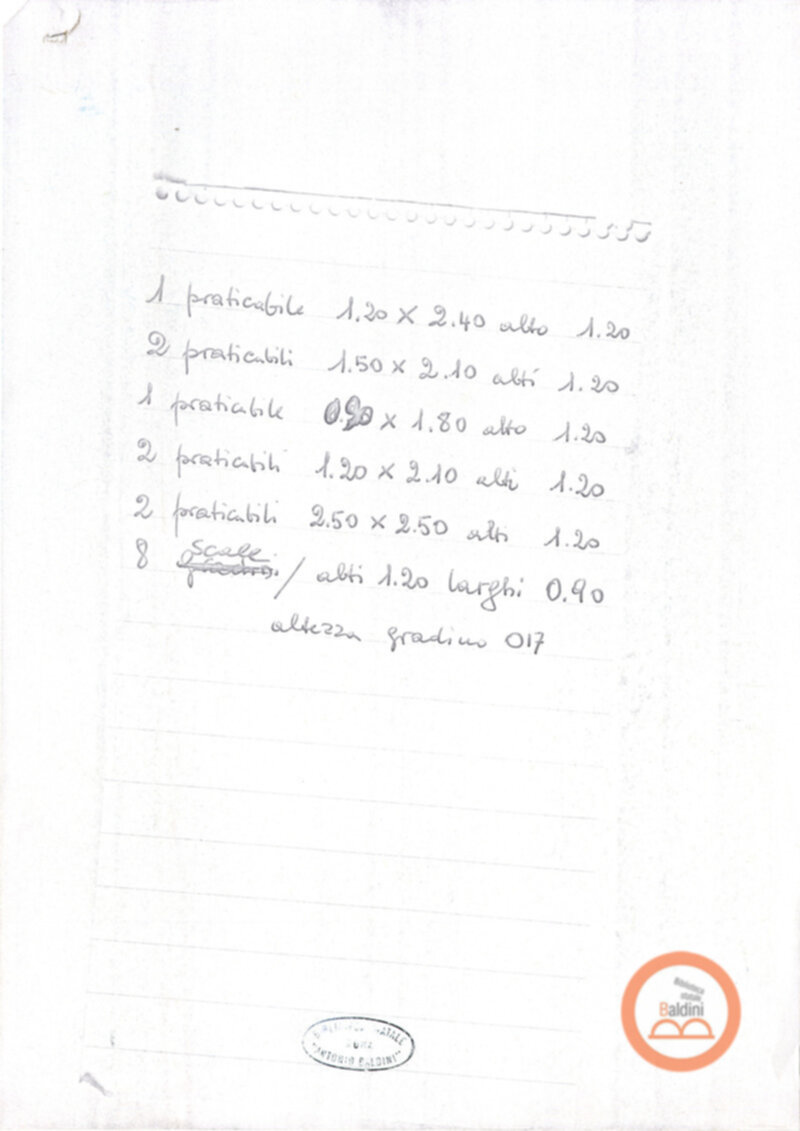 1 praticabile 1.20 × 2.40 alto 1.20
2 praticabili 1.50 × 2.10 alti 1.20
1 praticabile 0.90 × 1.80 alto 1.20
2 praticabili 1.20 × 2.10 alti 1.20
2 praticabili 2.50 × 2.50 alti 1.20
scale
8 / alti 1.20 larghi 0.90
altezza gradino 017
Biblioteca
statale
Baldini
"ANTONIO BALDINI"